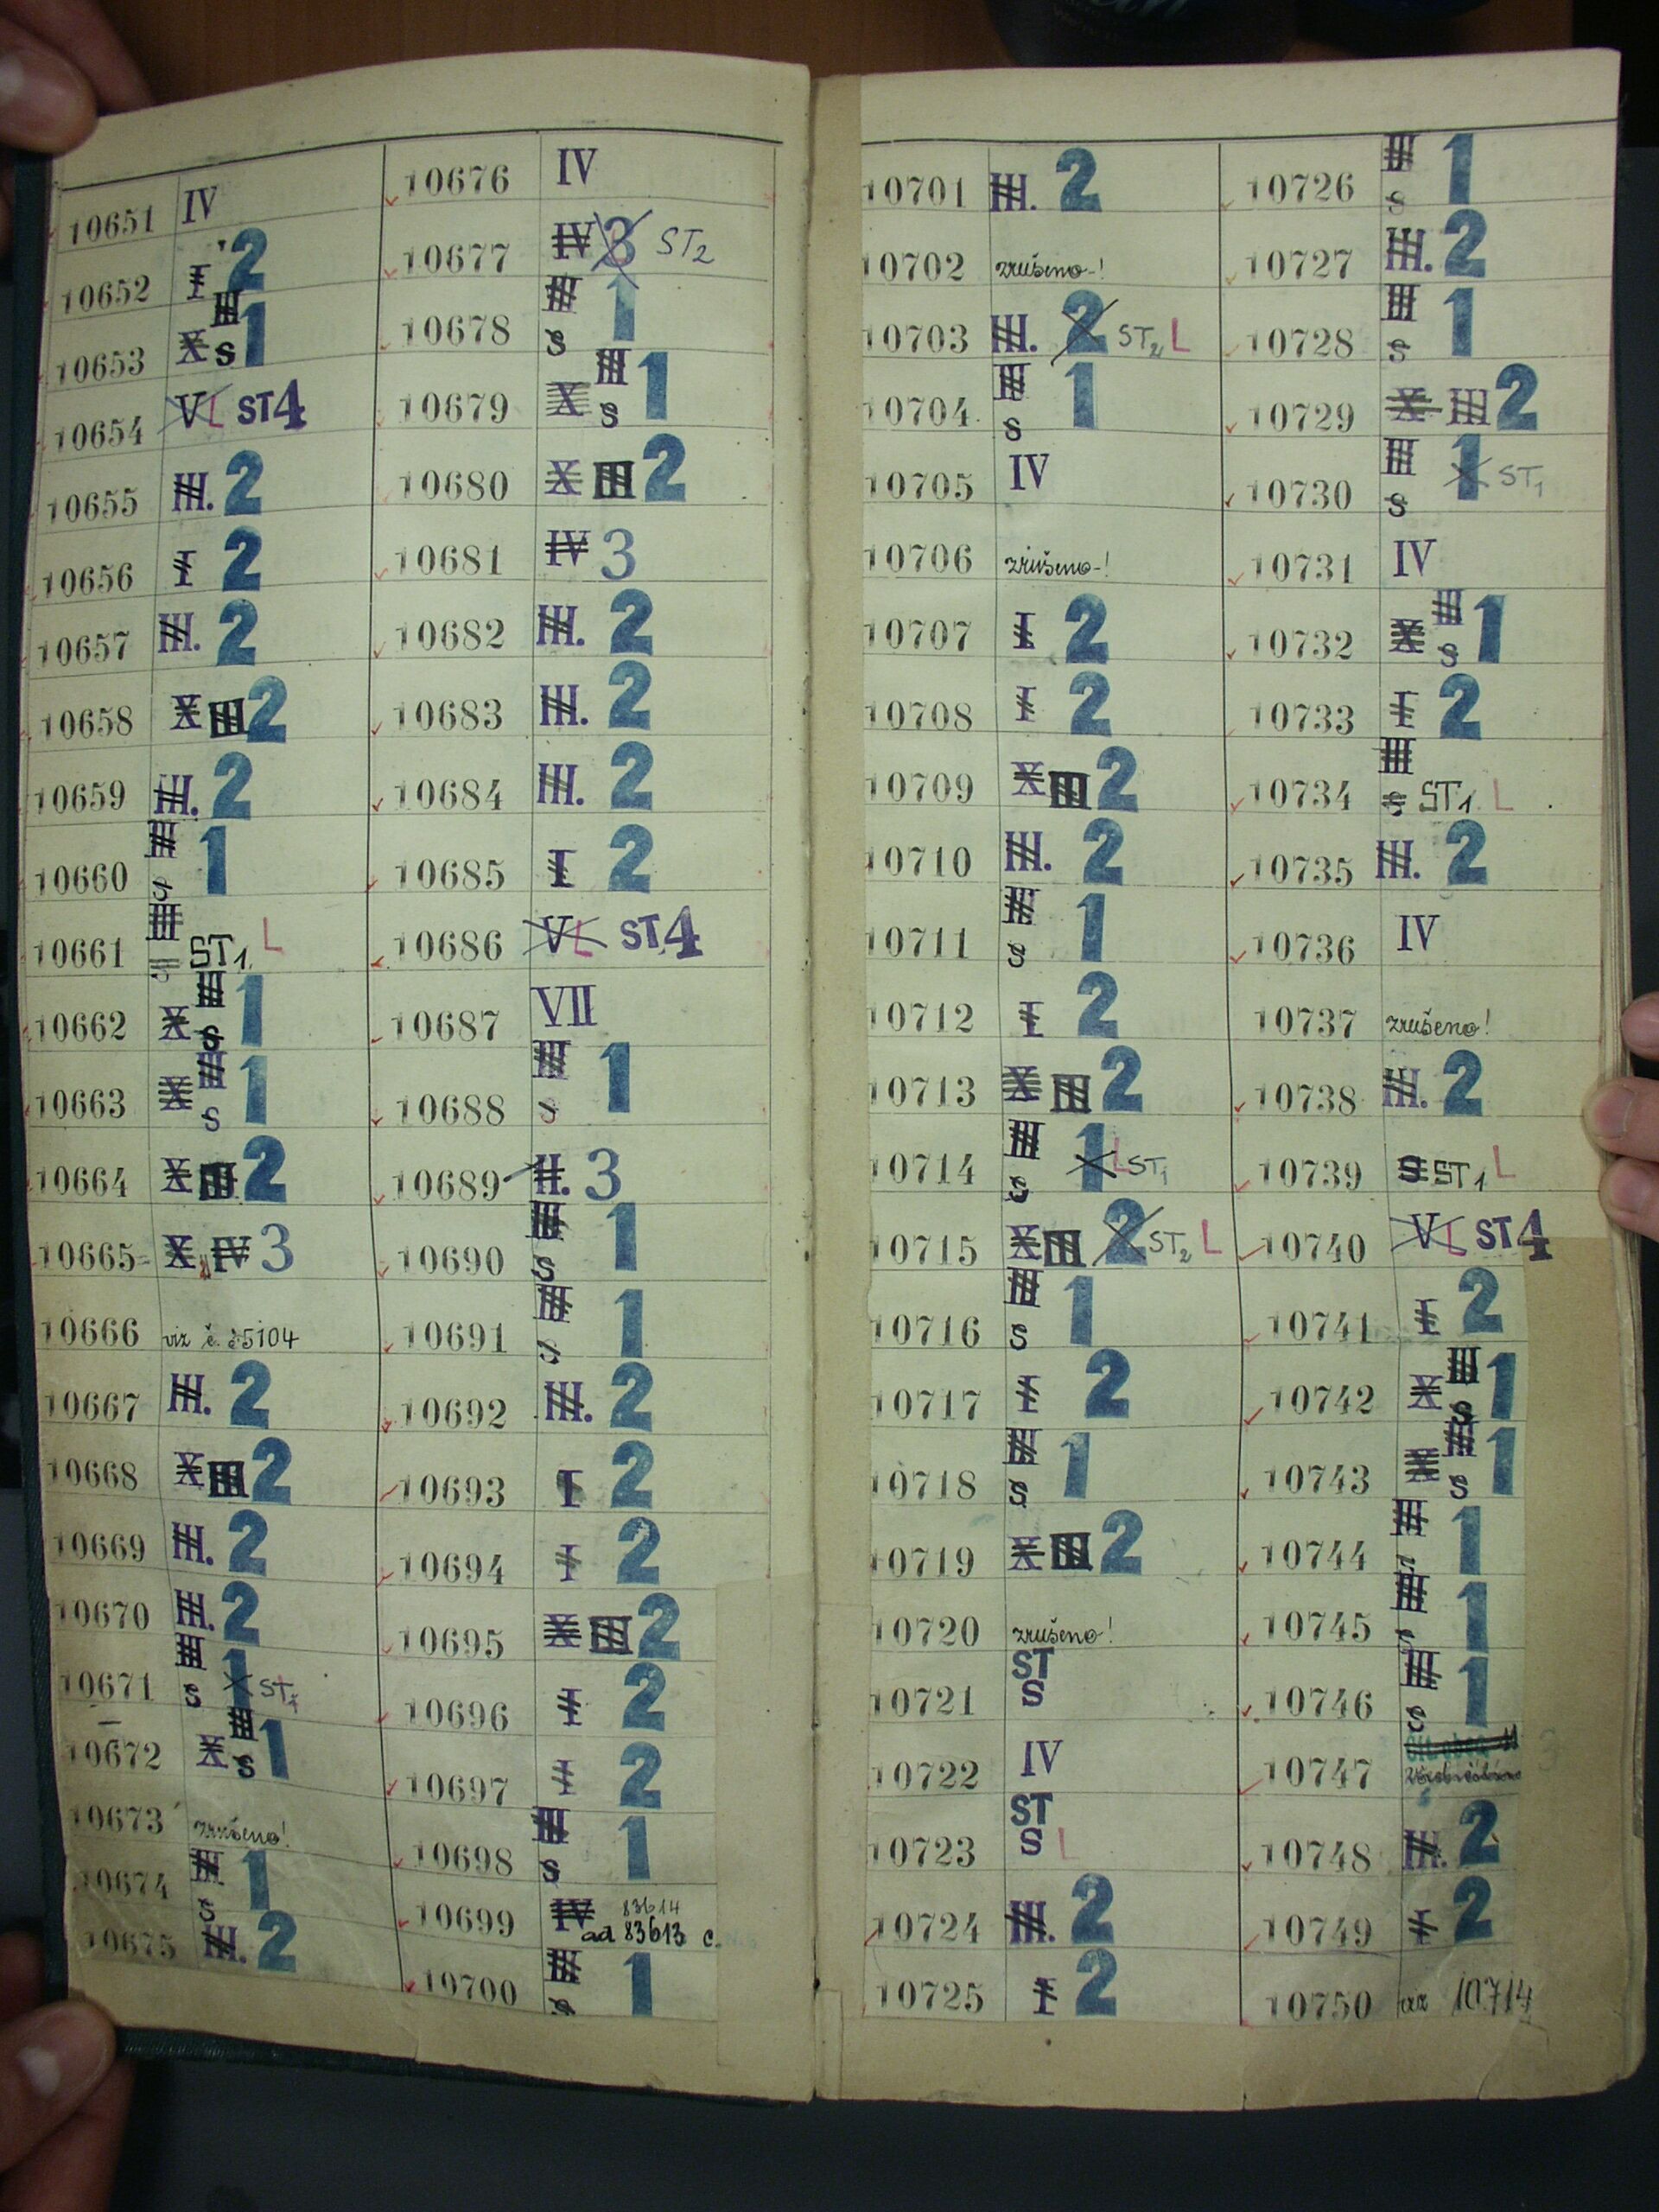 10651 IV
10652 I 2
10653 X III S 1
10654 V L ST 4
10655 III. 2
10656 I 2
10657 III. 2
10658 X III 2
10659 III. 2
10660 III S 1
10661 III S ST1 L
10662 X III S 1
10663 X III S 1
10664 X III 2
10665 X IV 3
10666 viz č. 5104
10667 III. 2
10668 X III 2
10669 III. 2
10670 III. 2
10671 III S 1 ST1
10672 X III S 1
10673 zrušeno!
10674 III S 1
10675 III. 2
10676 IV
10677 IV 3 ST2
10678 III S 1
10679 X III S 1
10680 X III 2
10681 IV 3
10682 III. 2
10683 III. 2
10684 III. 2
10685 I 2
10686 V L ST 4
10687 VII
10688 III S 1
10689 II. 3
10690 III S 1
10691 III S 1
10692 III. 2
10693 I 2
10694 I 2
10695 X III 2
10696 I 2
10697 I 2
10698 III S 1
10699 IV 83614
ad 83613 c.
10700 III S 1
10701 III. 2
10702 zrušeno-!
10703 III. 2 ST2 L
10704 III S 1
10705 IV
10706 zrušeno-!
10707 I 2
10708 I 2
10709 X III 2
10710 III. 2
10711 III S 1
10712 I 2
10713 X III 2
10714 III S 1 L ST1
10715 X III 2 ST2 L
10716 III S 1
10717 I 2
10718 III S 1
10719 X III 2
10720 zrušeno!
10721 ST S
10722 IV
10723 ST S L
10724 III. 2
10725 I 2
10726 III S 1
10727 III. 2
10728 III S 1
10729 X III 2
10730 III S 1 ST1
10731 IV
10732 X III S 1
10733 I 2
10734 III S ST1 L
10735 III. 2
10736 IV
10737 zrušeno!
10738 III. 2
10739 S ST1 L
10740 V L ST 4
10741 I 2
10742 X III S 1
10743 X III S 1
10744 III S 1
10745 III S 1
10746 III S 1
10747 3
10748 III. 2
10749 I 2
10750 viz 10714